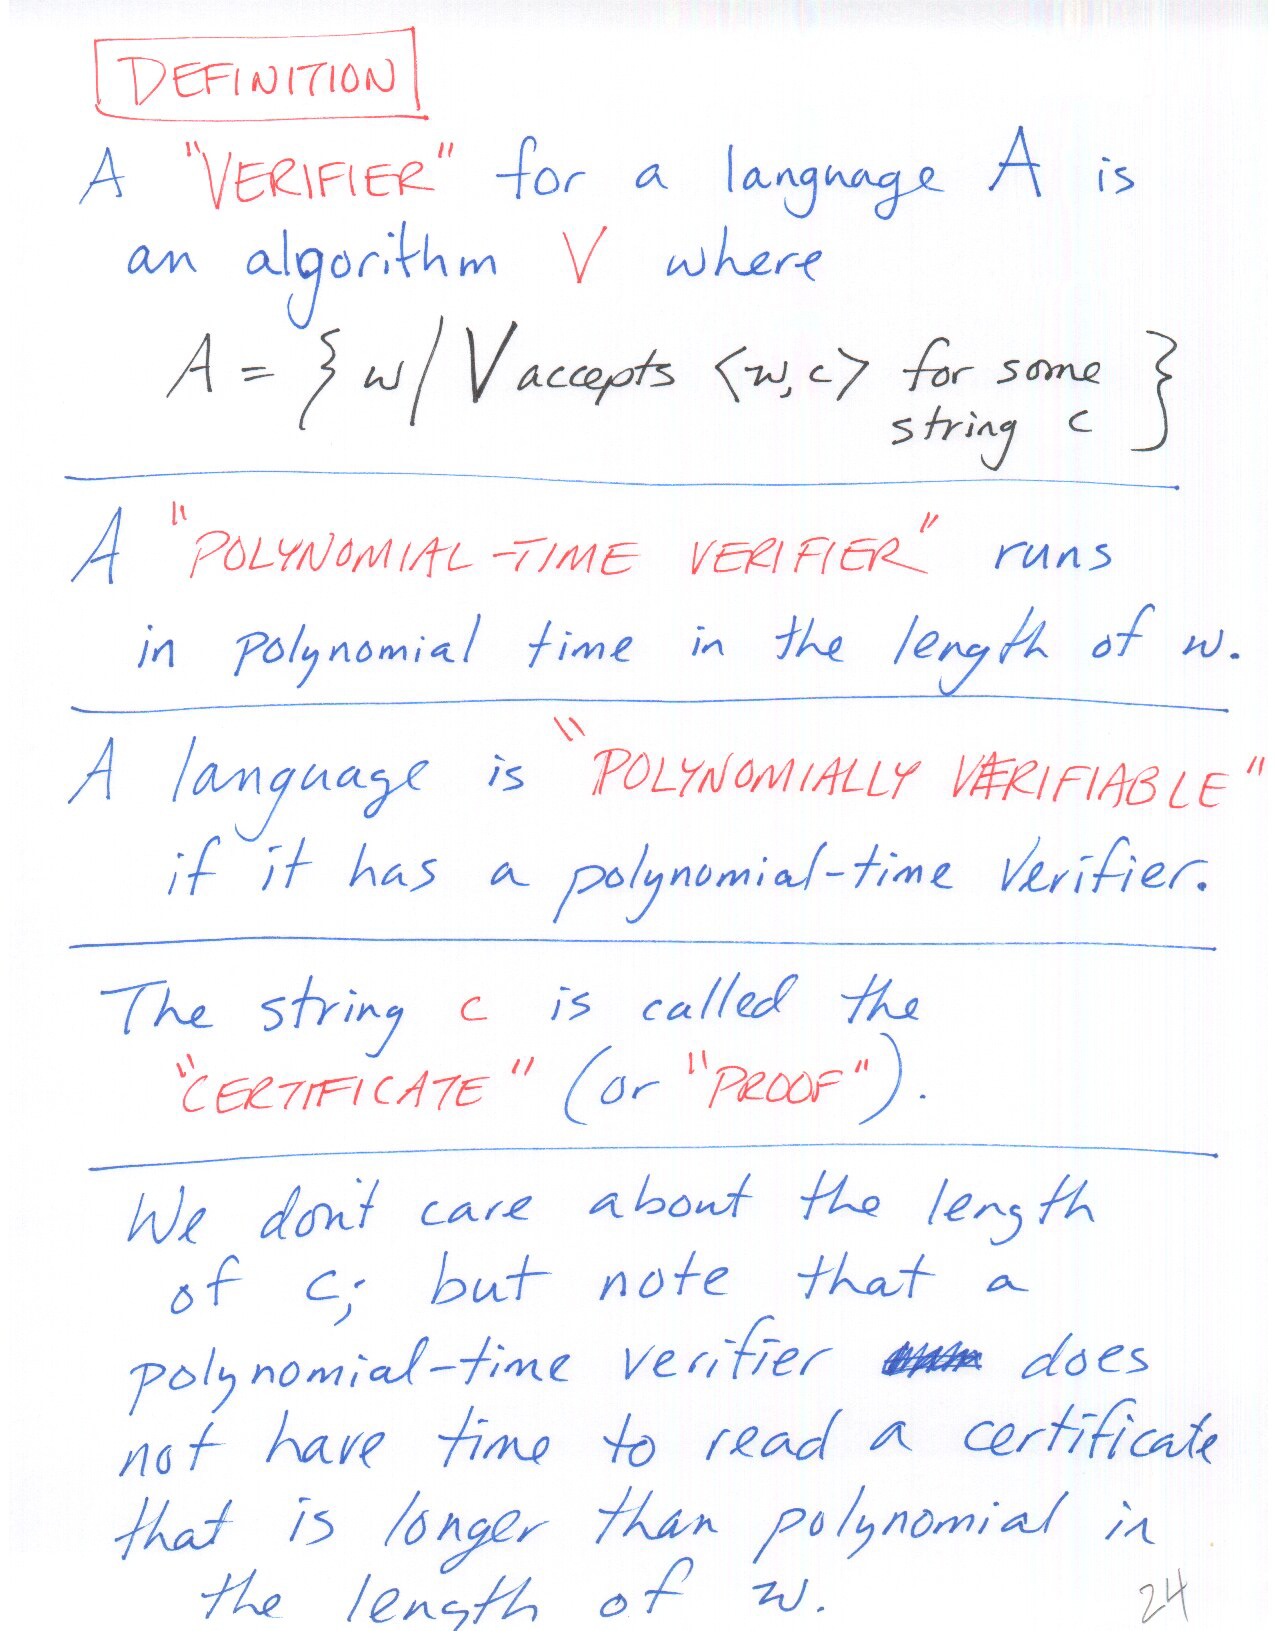 DEFINITION
A "VERIFIER" for a language A is
an algorithm V where
A = { w | V accepts <w,c> for some
string c }
A "POLYNOMIAL-TIME VERIFIER" runs
in polynomial time in the length of w.
A language is "POLYNOMIALLY VERIFIABLE"
if it has a polynomial-time verifier.
The string c is called the
"CERTIFICATE" (or "PROOF").
We don't care about the length
of c; but note that a
polynomial-time verifier does
not have time to read a certificate
that is longer than polynomial in
the length of w.
24